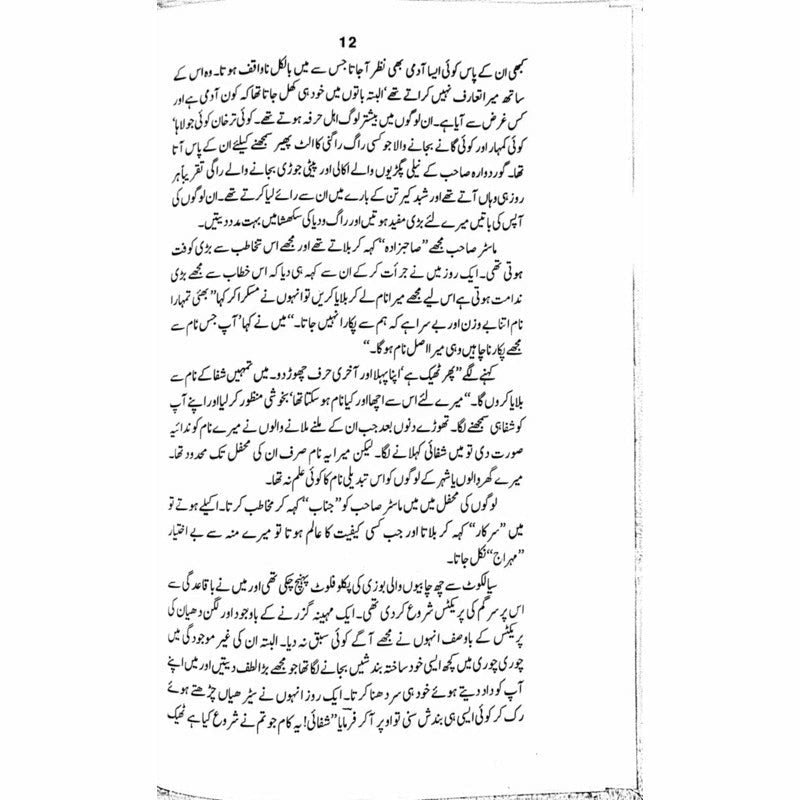 12
کبھی ان کے پاس کوئی ایسا آدمی بھی نظر آجاتا جس سے میں بالکل ناواقف ہوتا۔ وہ اس کے
ساتھ میرا تعارف نہیں کراتے تھے‘ البتہ باتوں میں خود ہی کھل جاتا تھا کہ کون آدمی ہے اور
کس غرض سے آیا ہے۔ ان لوگوں میں بیشتر لوگ اہل حرفہ ہوتے تھے۔ کوئی ترخان کوئی جولاہا‘
کوئی کمہار اور کوئی گانے بجانے والا جو کسی راگ راگنی کا الٹ پھیر سمجھنے کیلئے ان کے پاس آتا
تھا۔ گوردوارہ صاحب کے نیلی پگڑیوں والے اکالی اور پیٹی جوڑی بجانے والے راگی تقریباً ہر
روز ہی وہاں آتے تھے اور شبد کیرتن کے بارے میں ان سے رائے لیا کرتے تھے۔ ان لوگوں کی
آپس کی باتیں میرے لئے بڑی مفید ہوتیں اور راگ ودیا کی سکھشا میں بہت مدد دیتیں۔
ماسٹر صاحب مجھے ”صاحبزادہ“ کہہ کر بلاتے تھے اور مجھے اس تخاطب سے بڑی کوفت
ہوتی تھی۔ ایک روز میں نے جرأت کر کے ان سے کہہ ہی دیا کہ اس خطاب سے مجھے بڑی
ندامت ہوتی ہے اس لیے مجھے میرا نام لے کر بلایا کریں تو انہوں نے مسکرا کر کہا ”بھئی تمہارا
نام اتنا بے وزن اور بے سرا ہے کہ ہم سے پکارا نہیں جاتا۔“ میں نے کہا ’آپ جس نام سے
مجھے پکارنا چاہیں وہی میرا اصل نام ہو گا۔“
کہنے لگے ”پھر ٹھیک ہے‘ اپنا پہلا اور آخری حرف چھوڑ دو۔ میں تمہیں شفا کے نام سے
بلایا کروں گا۔“ میرے لئے اس سے اچھا اور کیا نام ہو سکتا تھا‘ بخوشی منظور کر لیا اور اپنے آپ
کو شفا ہی سمجھنے لگا۔ تھوڑے دنوں بعد جب ان کے ملنے ملانے والوں نے میرے نام کو ندائیہ
صورت دی تو میں شفائی کہلانے لگا۔ لیکن میرا یہ نام صرف ان کی محفل تک محدود تھا۔
میرے گھر والوں یا شہر کے لوگوں کو اس تبدیلی نام کا کوئی علم نہ تھا۔
لوگوں کی محفل میں میں ماسٹر صاحب کو ”جناب“ کہہ کر مخاطب کرتا۔ اکیلے ہوتے تو
میں ”سرکار“ کہہ کر بلاتا اور جب کسی کیفیت کا عالم ہوتا تو میرے منہ سے بے اختیار
”مہراج“ نکل جاتا۔
سیالکوٹ سے چھ چابیوں والی بوزی کی پکلو فلوٹ پہنچ چکی تھی اور میں نے باقاعدگی سے
اس پر سرگم کی پریکٹس شروع کر دی تھی۔ ایک مہینہ گزرنے کے باوجود اور لگن دھیان کی
پریکٹس کے باوصف انہوں نے مجھے آگے کوئی سبق نہ دیا۔ البتہ ان کی غیر موجودگی میں
چوری چوری میں کچھ ایسی خود ساختہ بندشیں بجانے لگا تھا جو مجھے بڑا لطف دیتیں اور میں اپنے
آپ کو داد دیتے ہوئے خود ہی سر دھنا کرتا۔ ایک روز انہوں نے سیڑھیاں چڑھتے ہوئے
رک کر کوئی ایسی ہی بندش سنی تو اوپر آ کر فرمایا ”شفائی! یہ کام جو تم نے شروع کیا ہے ٹھیک